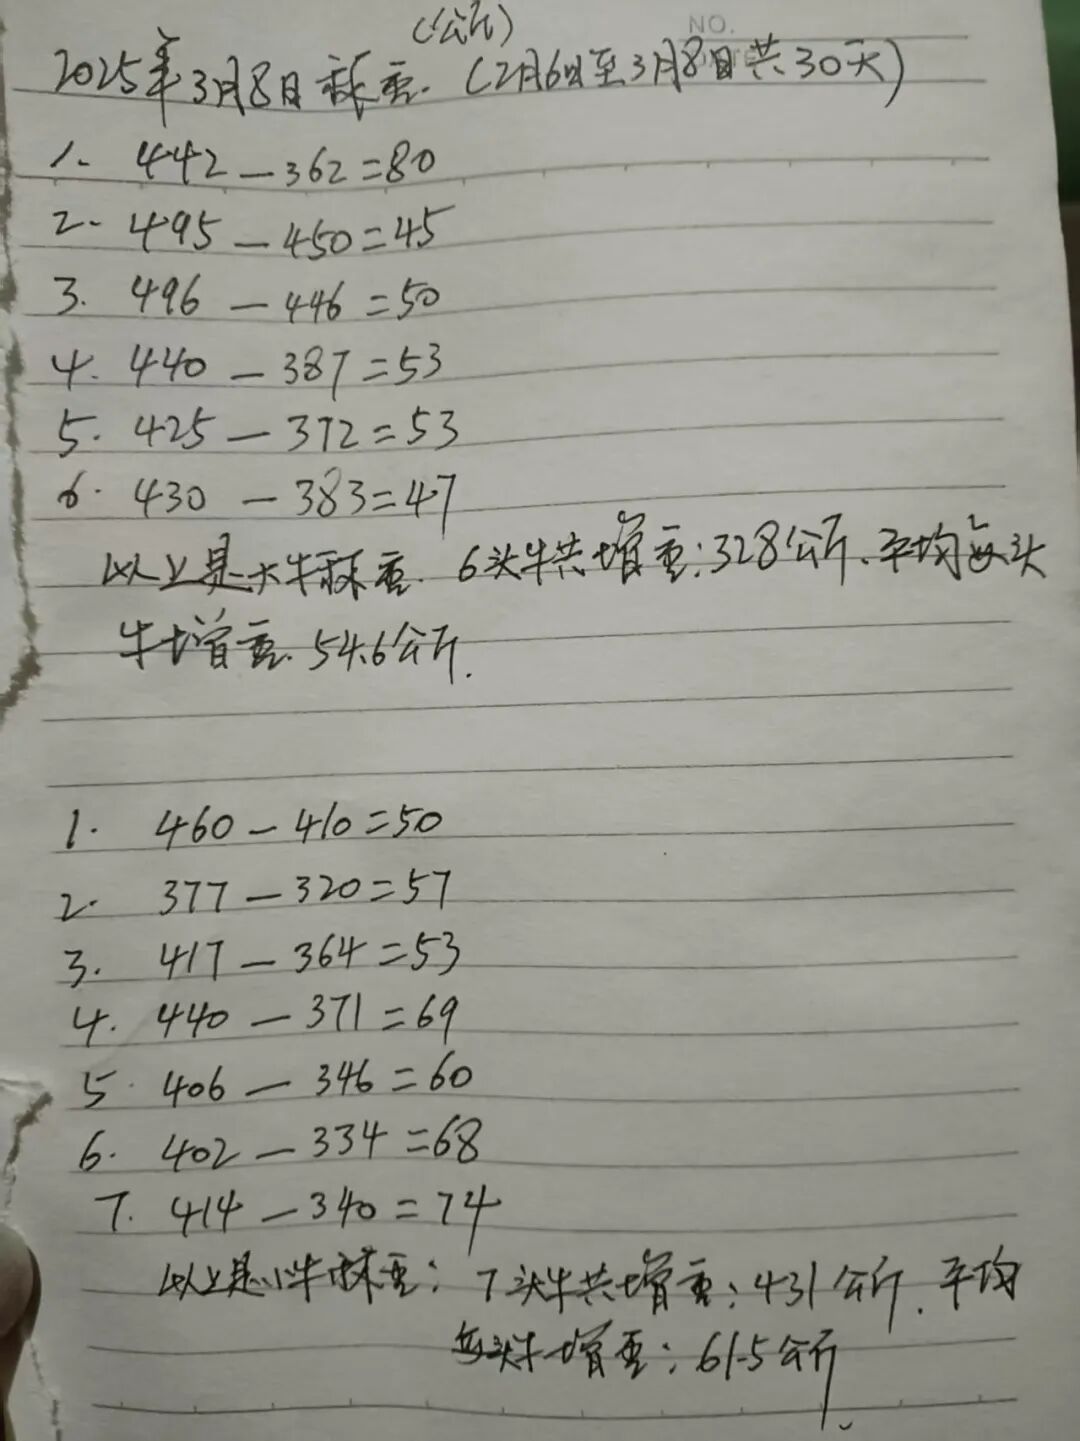 NO.
(公斤)
2025年3月8日称重.(2月6日至3月8日共30天)
1. 442-362=80
2. 495-450=45
3. 496-446=50
4. 440-387=53
5. 425-372=53
6. 430-383=47
以上是大牛称重. 6头牛共增重:328公斤.平均每头
牛增重.54.6公斤.
1. 460-410=50
2. 377-320=57
3. 417-364=53
4. 440-371=69
5. 406-346=60
6. 402-334=68
7. 414-340=74
以上是小牛称重: 7头牛共增重:431公斤.平均
每头牛增重:61.5公斤